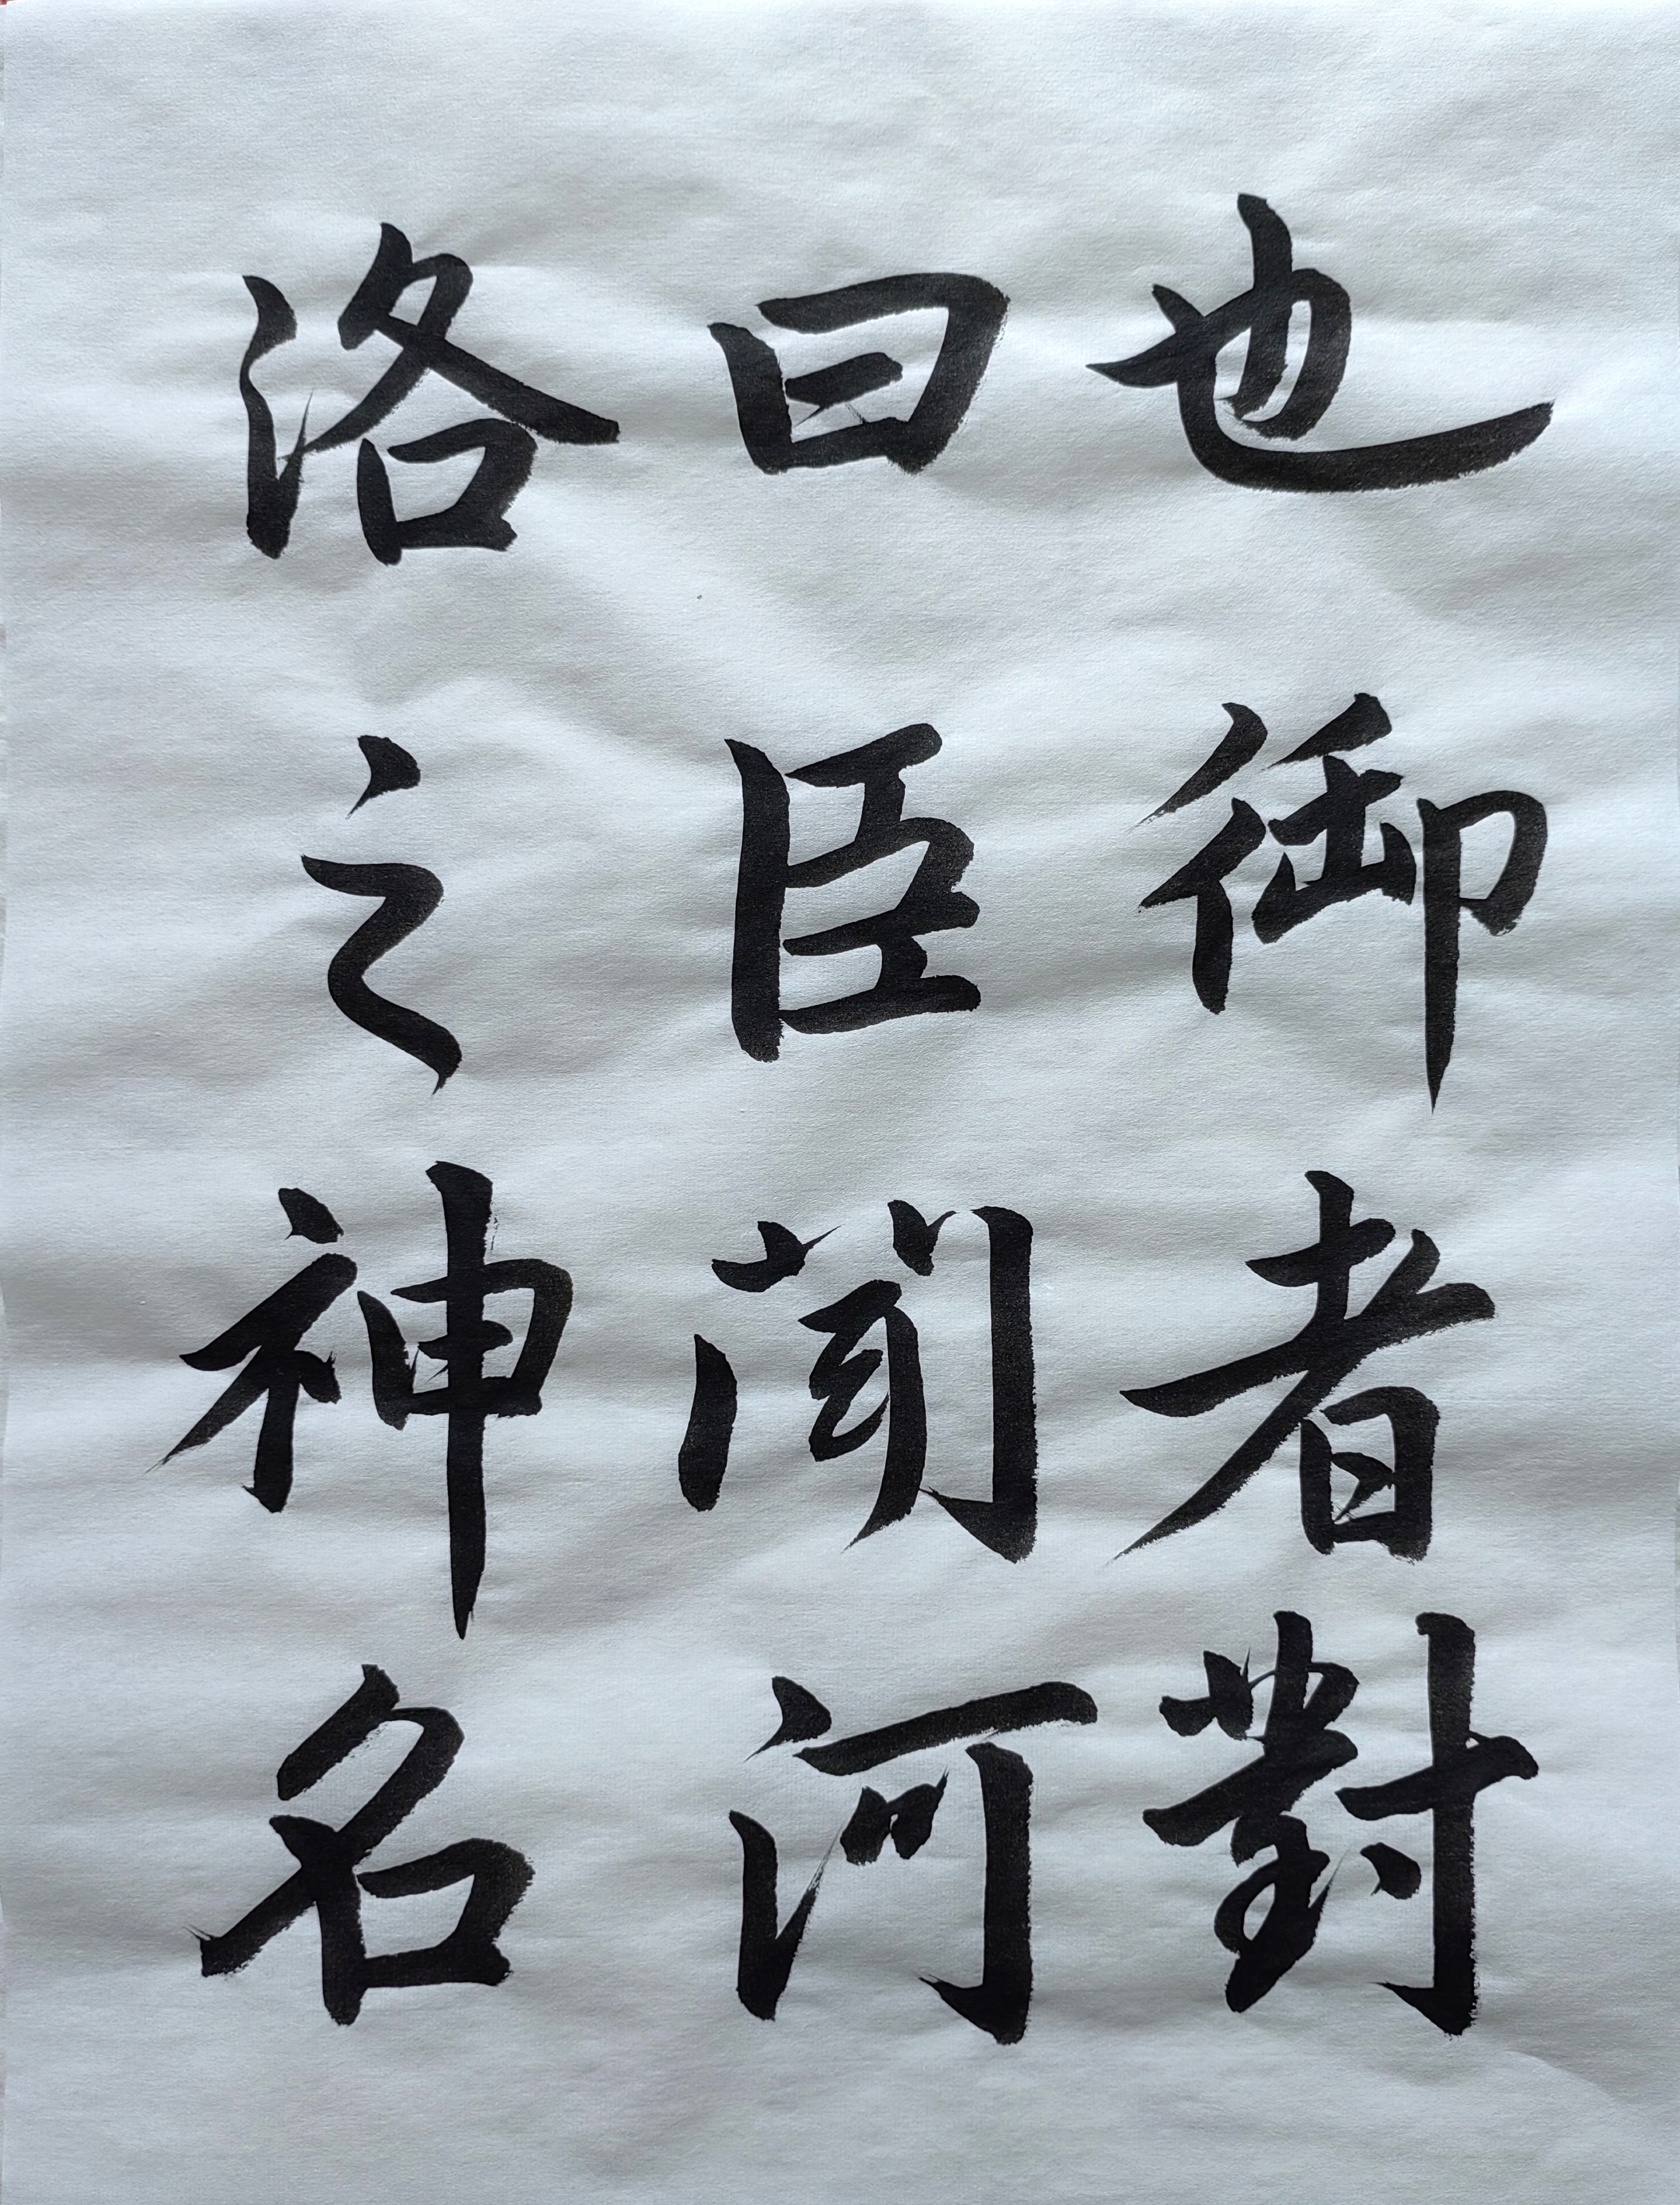 也御者對
曰臣聞河
洛之神名